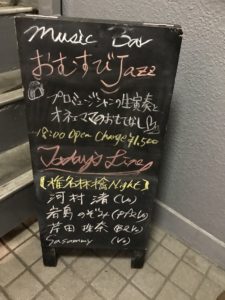 Music Bar
おむすびJazz
プロミュージシャンの生演奏と
オネエママのおもてなし
18:00 Open Charge ¥1,500
Today's Live
【椎名林檎Night】
河村 渚 (Vo)
岩島のぞみ (Pf&Vo)
芹田 (B&Vo)
Sasammy (Vo)